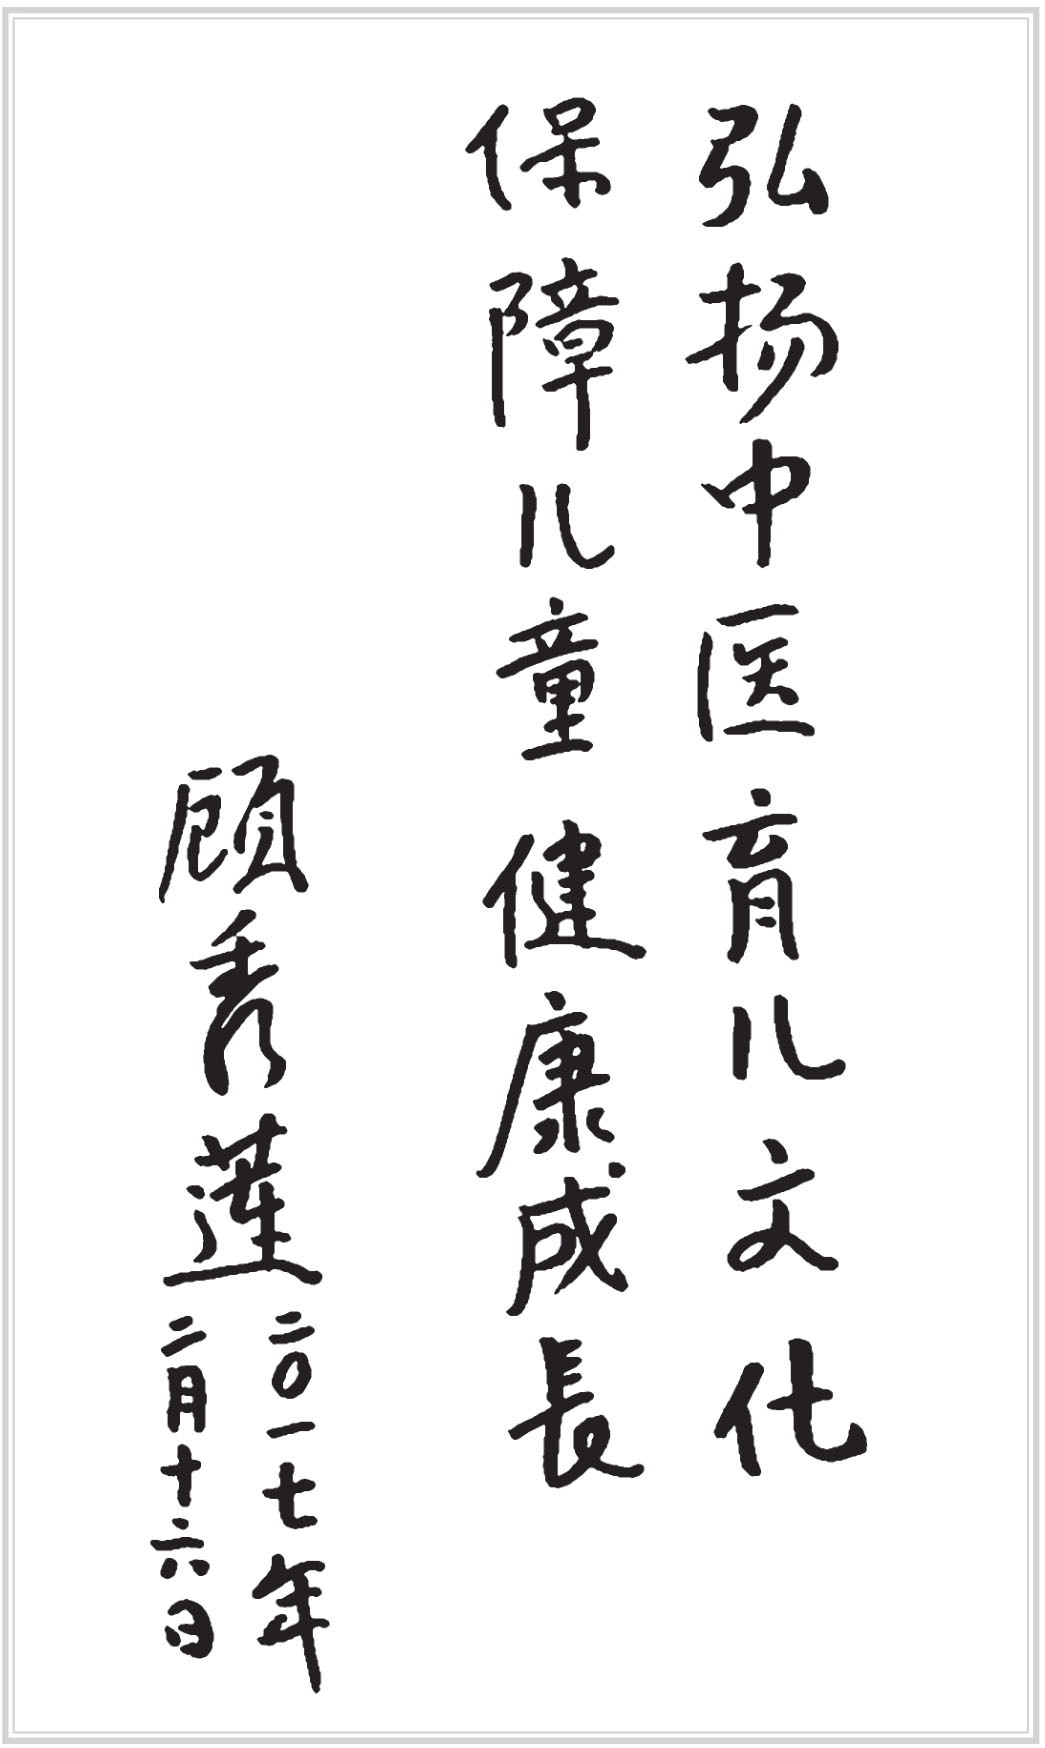 弘扬中医育儿文化
保障儿童健康成長
顾秀莲
二〇一七年
二月十六日